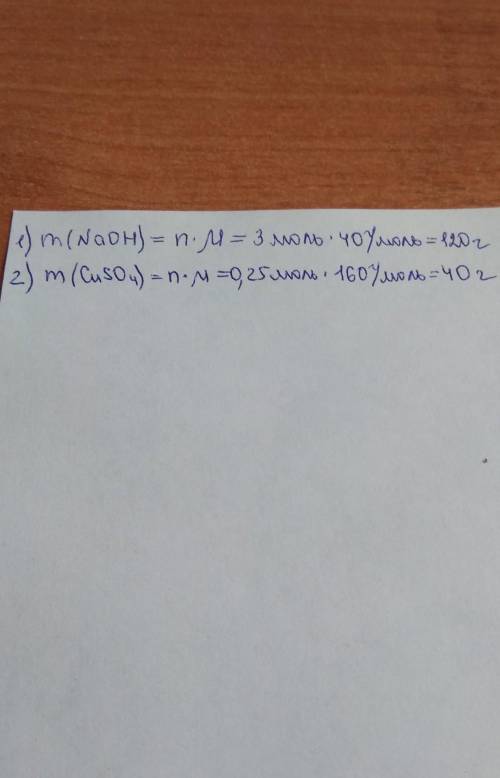 1) m(NaOH) = n · M = 3 моль · 40 г/моль = 120 г
2) m(CuSO₄) = n · M = 0,25 моль · 160 г/моль = 40 г